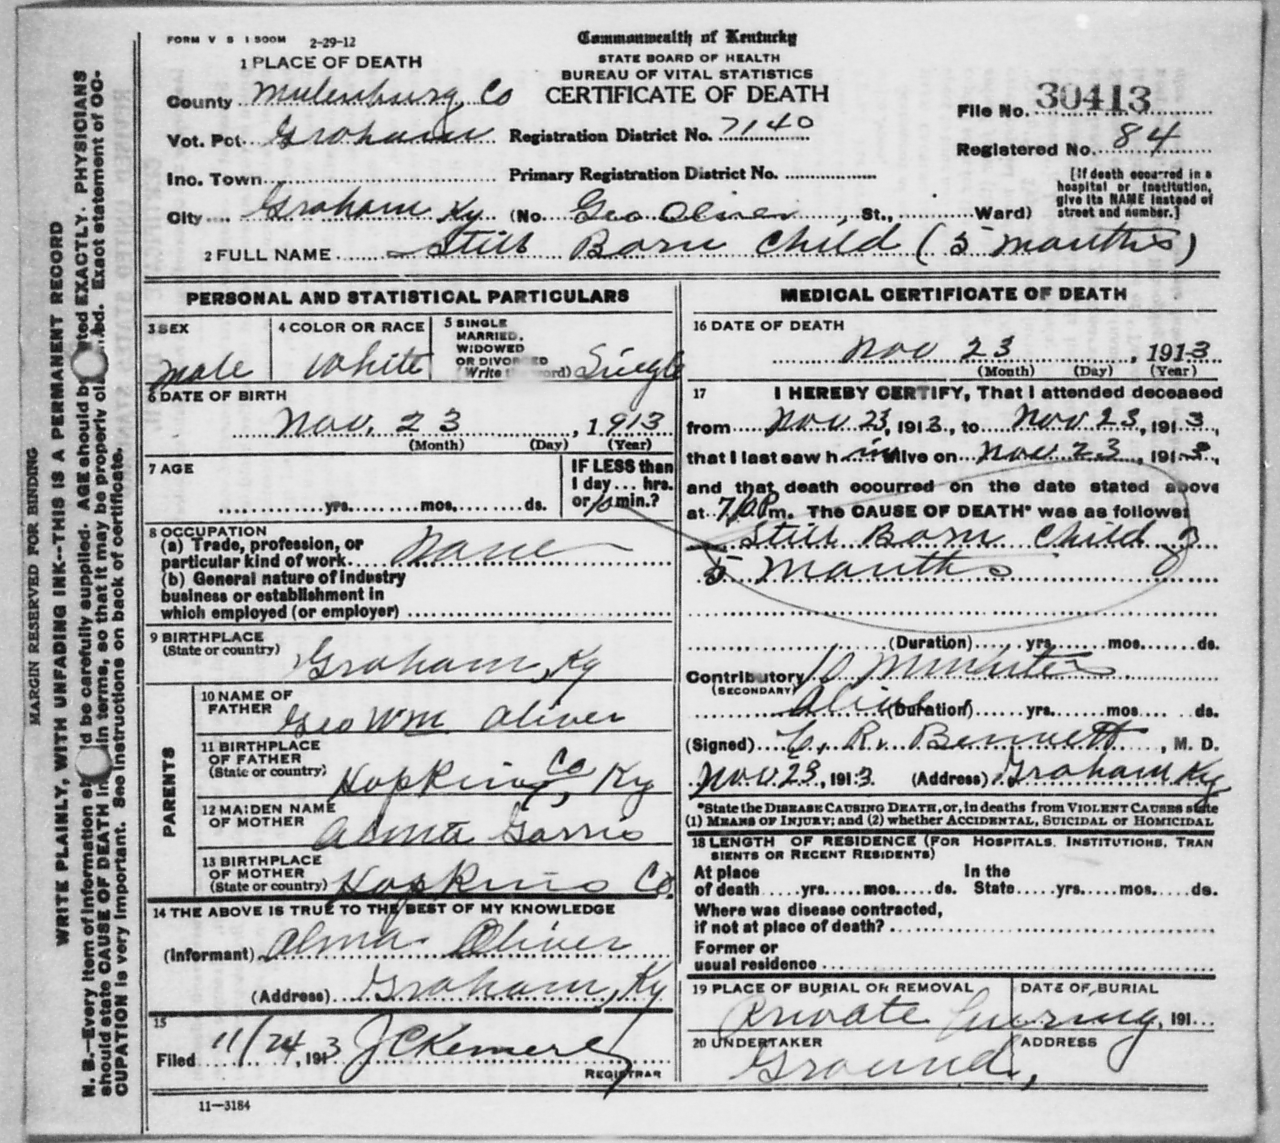 FORM V S 1 500M 2-29-12
Commonwealth of Kentucky
STATE BOARD OF HEALTH
BUREAU OF VITAL STATISTICS
CERTIFICATE OF DEATH
1 PLACE OF DEATH
County Mulenburg, Co
File No. 30413
Vot. Pct. Graham Registration District No. 7140
Registered No. 84
Inc. Town Primary Registration District No.
[If death occurred in a hospital or institution, give its NAME instead of street and number.]
City Graham Ky (No. Geo Oliver, St., Ward)
2 FULL NAME Still Born Child (5 months)
PERSONAL AND STATISTICAL PARTICULARS
3 SEX
Male
4 COLOR OR RACE
White
5 SINGLE
MARRIED,
WIDOWED
OR DIVORCED
(Write the word) Single
6 DATE OF BIRTH
Nov. 23, 1913
(Month) (Day) (Year)
7 AGE
yrs. mos. ds.
IF LESS than
1 day ... hrs.
or 10 min.?
8 OCCUPATION
(a) Trade, profession, or
particular kind of work None
(b) General nature of industry
business or establishment in
which employed (or employer)
9 BIRTHPLACE
(State or country)
Graham, Ky
PARENTS
10 NAME OF
FATHER
Geo Wm Oliver
11 BIRTHPLACE
OF FATHER
(State or country)
Hopkins Co, Ky
12 MAIDEN NAME
OF MOTHER
Alma Garris
13 BIRTHPLACE
OF MOTHER
(State or country)
Hopkins Co.
14 THE ABOVE IS TRUE TO THE BEST OF MY KNOWLEDGE
(Informant) Alma Oliver
(Address) Graham, Ky
15
Filed 11/24, 1913 J C
REGISTRAR
MEDICAL CERTIFICATE OF DEATH
16 DATE OF DEATH
Nov 23, 1913
(Month) (Day) (Year)
17 I HEREBY CERTIFY, That I attended deceased
from Nov 23, 1913, to Nov 23, 1913,
that I last saw h im alive on Nov 23, 1913,
and that death occurred on the date stated above
at 7 P m. The CAUSE OF DEATH* was as follows:
Still Born Child
5 months
(Duration) yrs. mos. ds.
Contributory 10 Minutes
(SECONDARY)
Alive (Duration) yrs. mos. ds.
(Signed) C. R. Bennett, M. D.
Nov. 23, 1913 (Address) Graham Ky
*State the DISEASE CAUSING DEATH, or, in deaths from VIOLENT CAUSES state
(1) MEANS OF INJURY; and (2) whether ACCIDENTAL, SUICIDAL or HOMICIDAL
18 LENGTH OF RESIDENCE (FOR HOSPITALS, INSTITUTIONS, TRAN
SIENTS OR RECENT RESIDENTS)
At place
of death yrs. mos. ds.
In the
State yrs. mos. ds.
Where was disease contracted,
if not at place of death?
Former or
usual residence
19 PLACE OF BURIAL OR REMOVAL
DATE OF BURIAL
Private burying, 191
20 UNDERTAKER
ADDRESS
Ground,
11-3184
MARGIN RESERVED FOR BINDING
WRITE PLAINLY, WITH UNFADING INK--THIS IS A PERMANENT RECORD
N. B.--Every item of information should be carefully supplied. AGE should be stated EXACTLY. PHYSICIANS
should state CAUSE OF DEATH in plain terms, so that it may be properly classified. Exact statement of OC-
CUPATION is very important. See instructions on back of certificate.